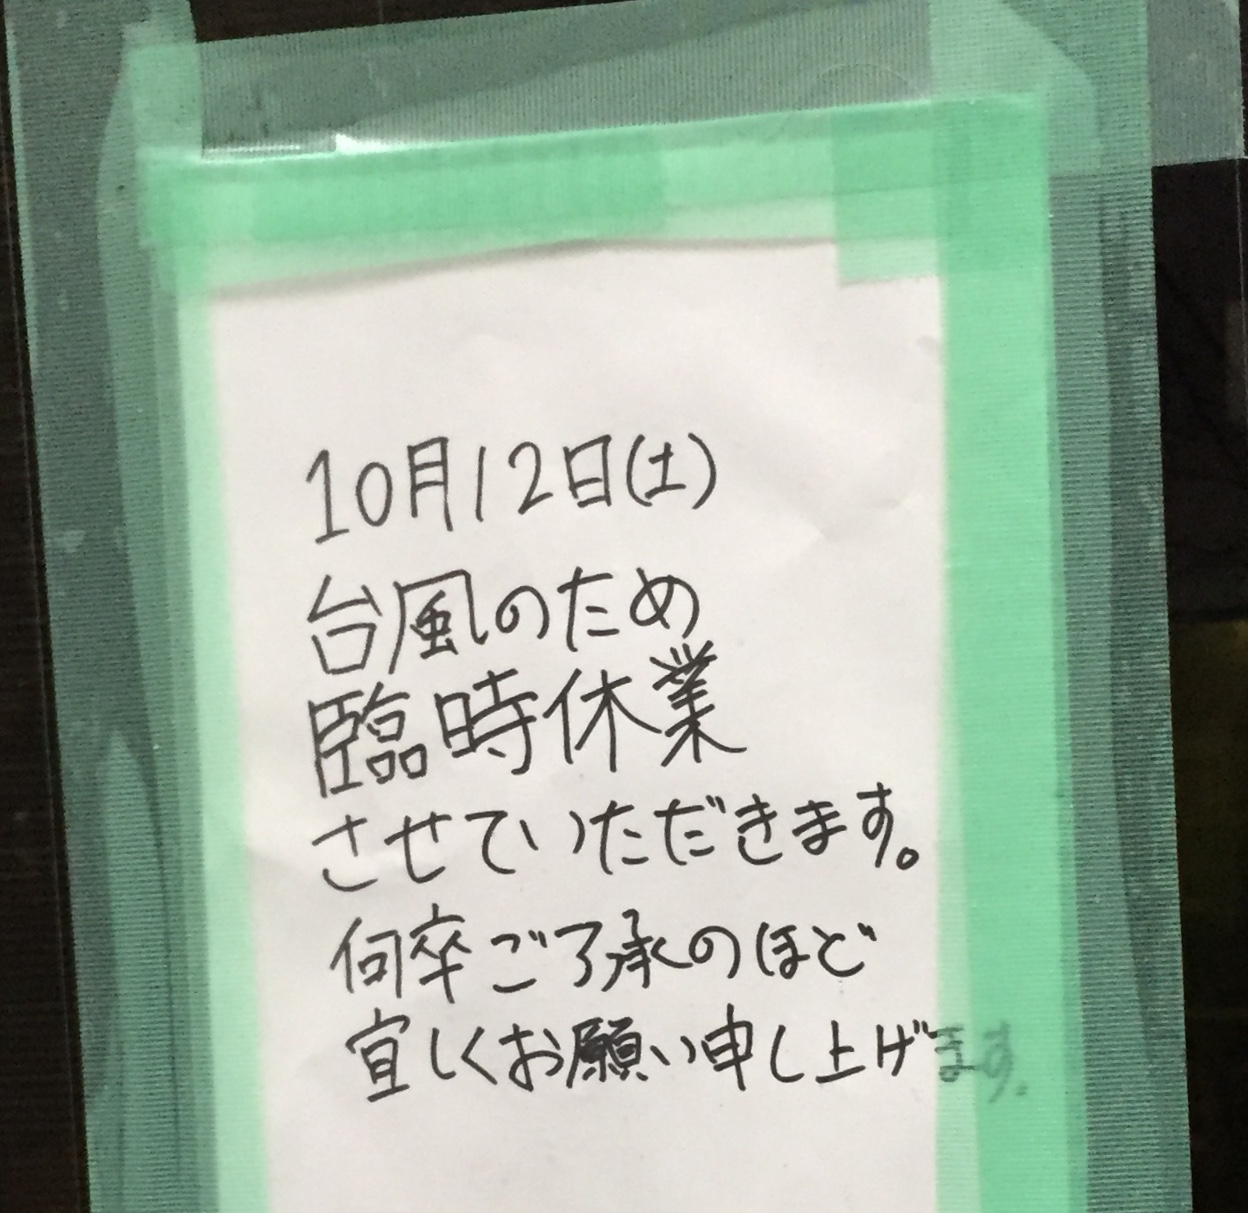 10月12日(土)
台風のため
臨時休業
させていただきます。
何卒ご了承のほど
宜しくお願い申し上げます.